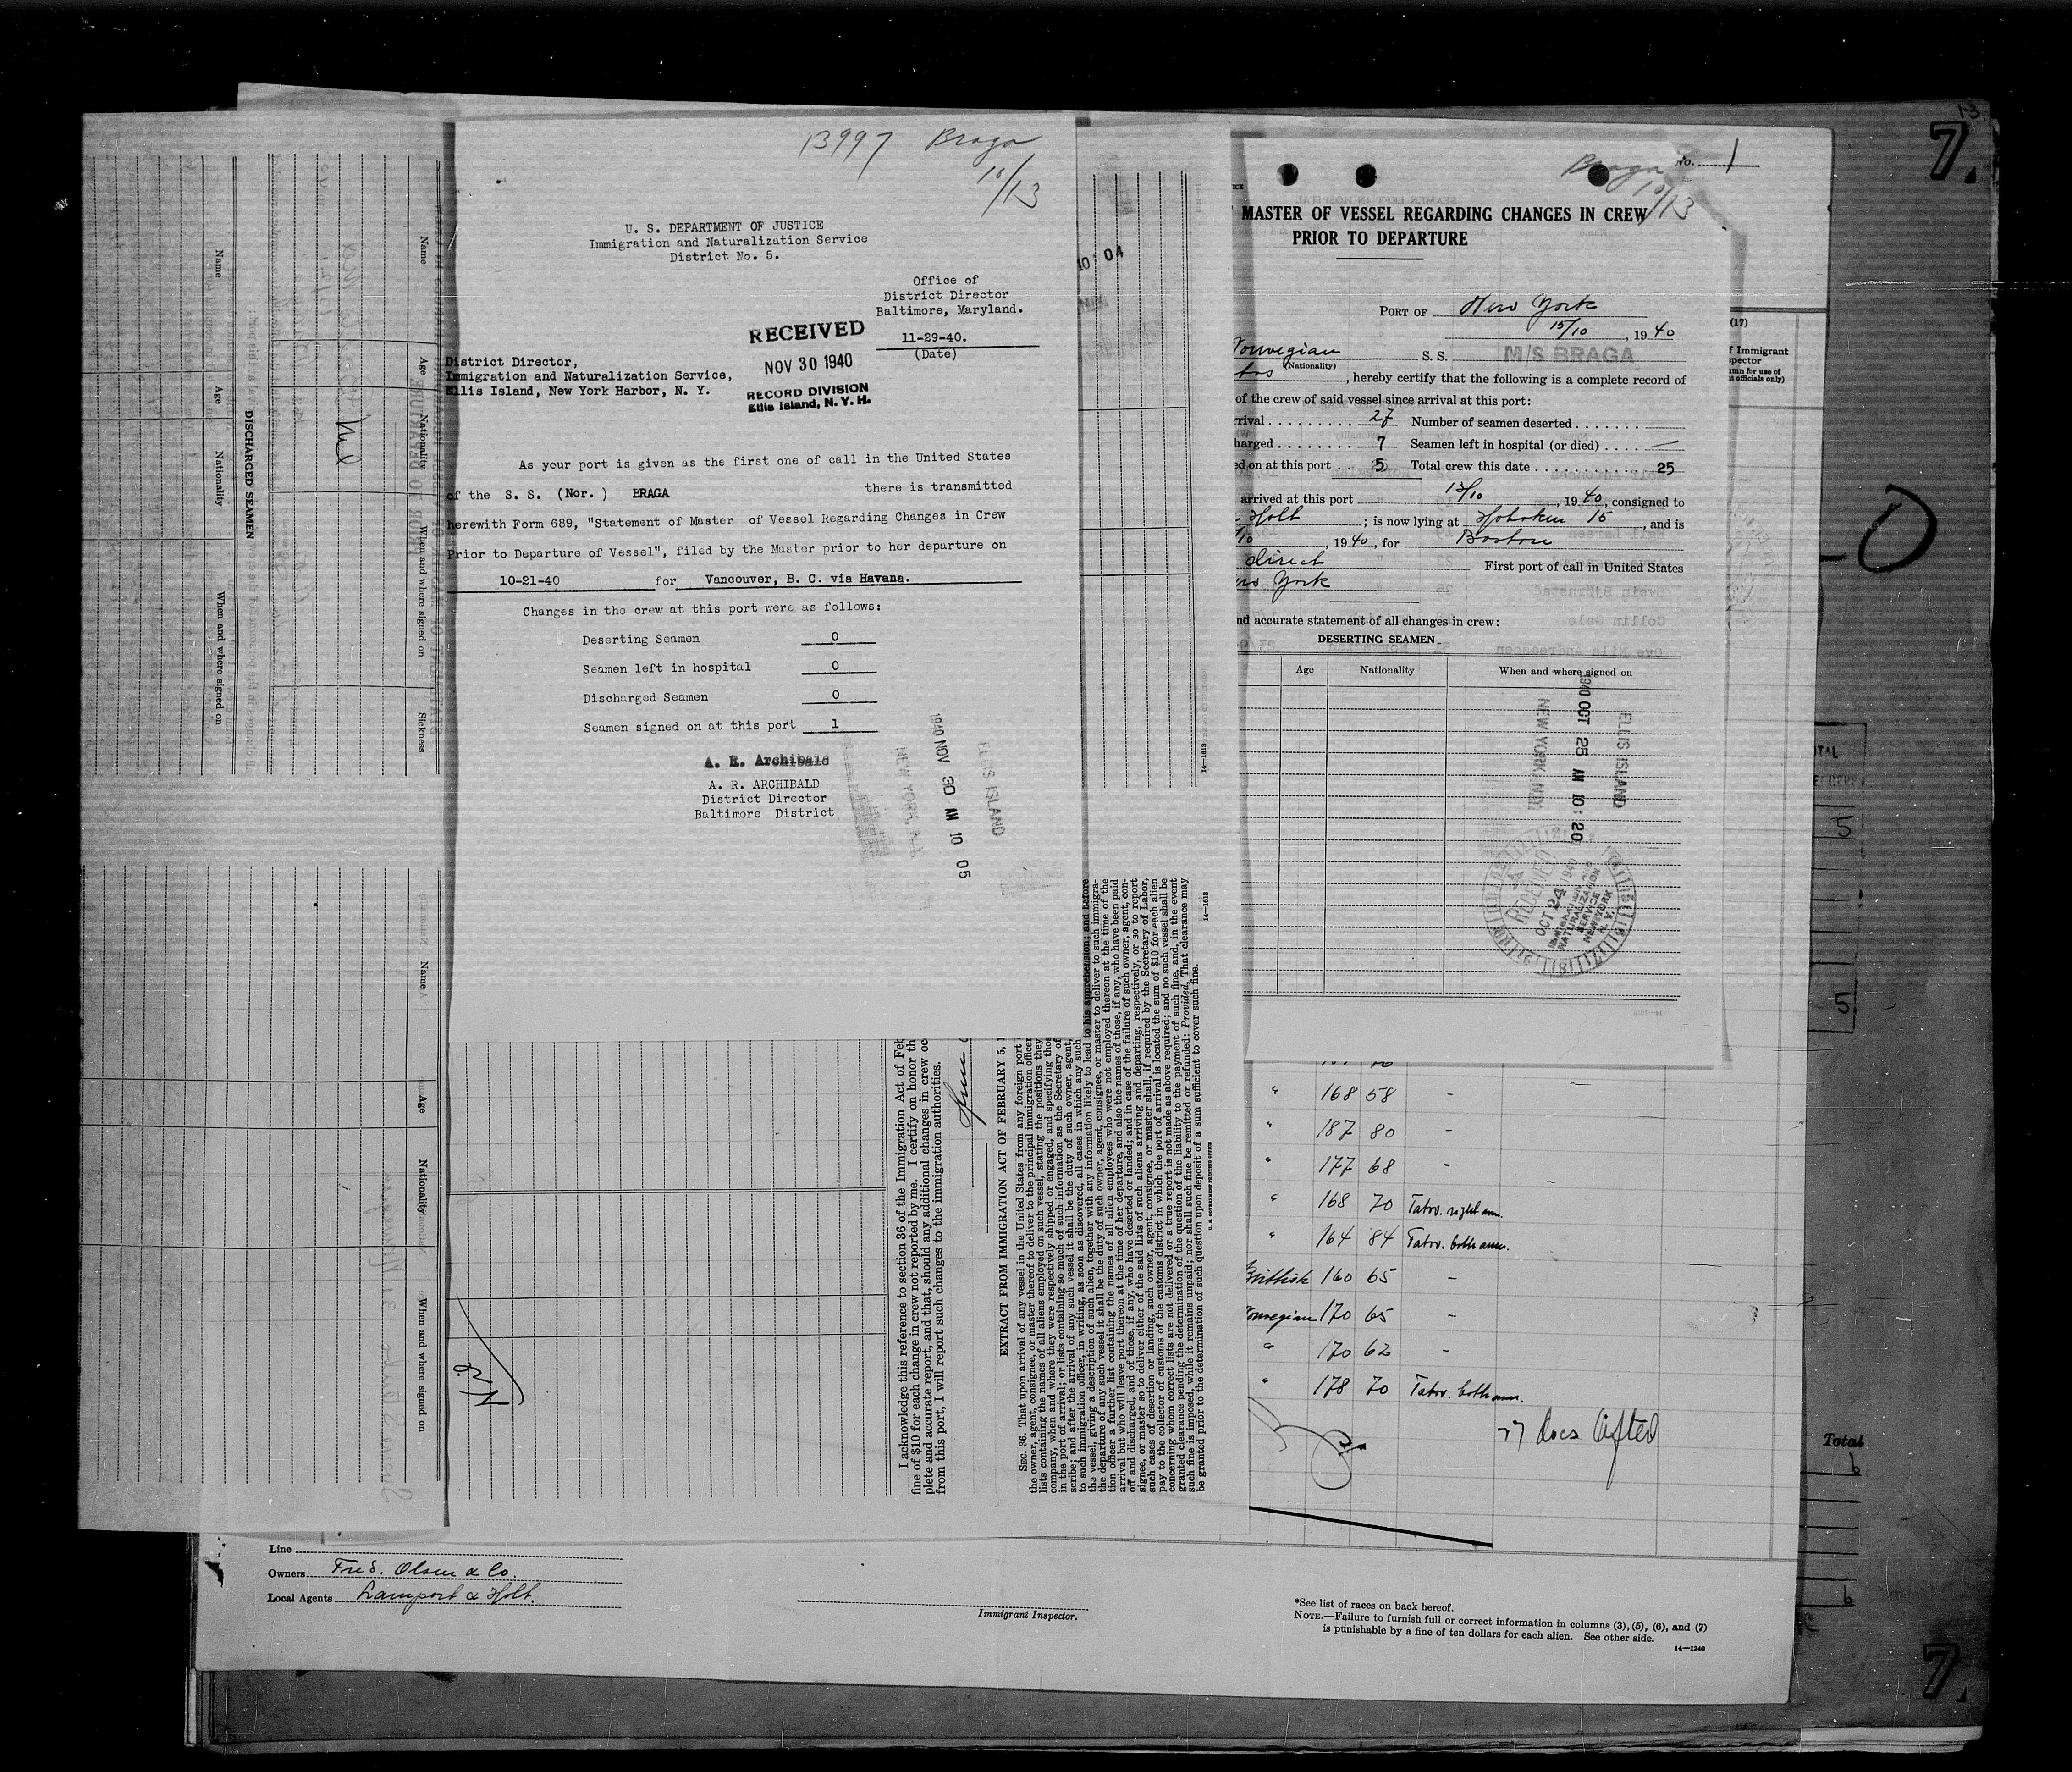 13997 Braga
10/13
U. S. DEPARTMENT OF JUSTICE
Immigration and Naturalization Service
District No. 5.
Office of
District Director
Baltimore, Maryland.
11-29-40.
(Date)
RECEIVED
NOV 30 1940
RECORD DIVISION
Ellis Island, N. Y. H.
District Director,
Immigration and Naturalization Service,
Ellis Island, New York Harbor, N. Y.
As your port is given as the first one of call in the United States
of the S. S. (Nor. ) BRAGA there is transmitted
herewith Form 689, "Statement of Master of Vessel Regarding Changes in Crew
Prior to Departure of Vessel", filed by the Master prior to her departure on
10-21-40 for Vancouver, B. C. via Havana.
Changes in the crew at this port were as follows:
Deserting Seamen 0
Seamen left in hospital 0
Discharged Seamen 0
Seamen signed on at this port 1
A. R. Archibald
A. R. ARCHIBALD
District Director
Baltimore District
ELLIS ISLAND
1940 NOV 30 AM 10 05
NEW YORK, N.Y.
No. 1
Braga
10/13
MASTER OF VESSEL REGARDING CHANGES IN CREW
PRIOR TO DEPARTURE
PORT OF New York
15/10, 1940
Norwegian S. S. M/S BRAGA
(Nationality)
, hereby certify that the following is a complete record of
of the crew of said vessel since arrival at this port:
rival 27 Number of seamen deserted
harged 7 Seamen left in hospital (or died) —
ed on at this port 5 Total crew this date 25
arrived at this port 13/10, 1940, consigned to
Holt ; is now lying at Hoboken 15, and is
/10, 1940, for Boston
direct First port of call in United States
New York
nd accurate statement of all changes in crew:
DESERTING SEAMEN
Age Nationality When and where signed on
ELLIS ISLAND
1940 OCT 25 AM 10:20
NEW YORK, N.Y.
RECEIVED
OCT 24 1940
IMMIGRATION AND
NATURALIZATION
SERVICE
NEW YORK
N. Y.
(17)
f Immigrant
spector
umn for use of
t officials only)
10:04
DISCHARGED SEAMEN
Name Age Nationality When and where signed on
Name Age Nationality When and where signed on Sickness
Nil
Name Age Nationality When and where signed on
Nil
I acknowledge this reference to section 36 of the Immigration Act of Feb
fine of $10 for each change in crew not reported by me. I certify on honor th
plete and accurate report, and that, should any additional changes in crew oc
from this port, I will report such changes to the immigration authorities.
EXTRACT FROM IMMIGRATION ACT OF FEBRUARY 5, 1
SEC. 36. That upon arrival of any vessel in the United States from any foreign port
the owner, agent, consignee, or master thereof to deliver to the principal immigration officer
lists containing the names of all aliens employed on such vessel, stating the positions they
company, when and where they were respectively shipped or engaged, and specifying tho
in the port of arrival; or lists containing so much of such information as the Secretary of
scribe; and after the arrival of any such vessel it shall be the duty of such owner, agent,
to such immigration officer, in writing, as soon as discovered, all cases in which any such
the vessel, giving a description of such alien, together with any information likely to lead to his apprehension; and before
the departure of any such vessel it shall be the duty of such owner, agent, consignee, or master to deliver to such immigra-
tion officer a further list containing the names of all alien employees who were not employed thereon at the time of the
arrival but who will leave port thereon at the time of her departure, and also the names of those, if any, who have been paid
off and discharged, and of those, if any, who have deserted or landed; and in case of the failure of such owner, agent, con-
signee, or master so to deliver either of the said lists of such aliens arriving and departing, respectively, or so to report
such cases of desertion or landing, such owner, agent, consignee, or master shall, if required by the Secretary of Labor,
pay to the collector of customs of the customs district in which the port of arrival is located the sum of $10 for each alien
concerning whom correct lists are not delivered or a true report is not made as above required; and no such vessel shall be
granted clearance pending the determination of the question of the liability to the payment of such fine, and, in the event
such fine is imposed, while it remains unpaid; nor shall such fine be remitted or refunded: Provided, That clearance may
be granted prior to the determination of such question upon deposit of a sum sufficient to cover such fine.
14—1613
" 168 58 -
" 187 80 -
" 177 68 -
" 168 70 Tatov. right arm.
" 164 84 Tatov. both arms.
British 160 65 -
Norwegian 170 65 -
" 170 62 -
" 178 70 Tatov. both arms.
27 docs lifted
Line
Owners Fred. Olsen & Co.
Local Agents Lamport & Holt.
Immigrant Inspector.
*See list of races on back hereof.
NOTE.—Failure to furnish full or correct information in columns (3), (5), (6), and (7)
is punishable by a fine of ten dollars for each alien. See other side.
14—1240
Total
5
5
6
6
7.
7.